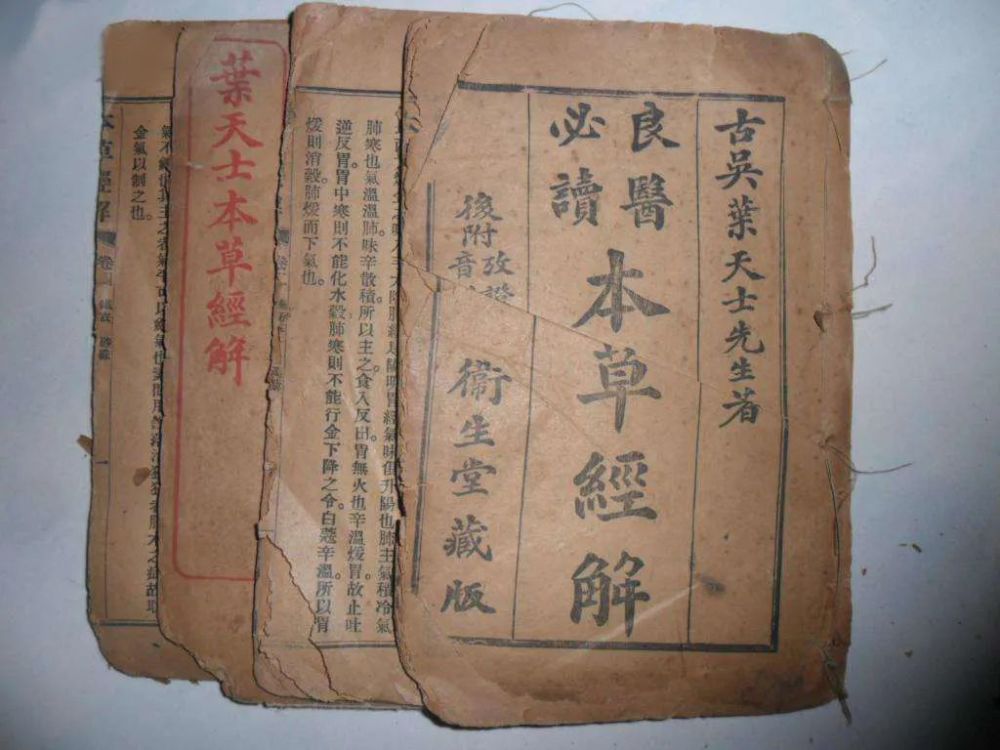 古吳葉天士先生著
良醫
必讀
本草經解
後附攷證
音
衞生堂藏版
肺寒也氣溫溫肺味辛散積所以主之食入反出胃無火也辛溫煖胃故止吐
逆反胃胃中寒則不能化水穀肺寒則不能行金下降之令白蔻辛溫所以胃
煖則消穀肺煖而下氣也
葉天士本草經解
金氣以制之也
本草經解
卷
一